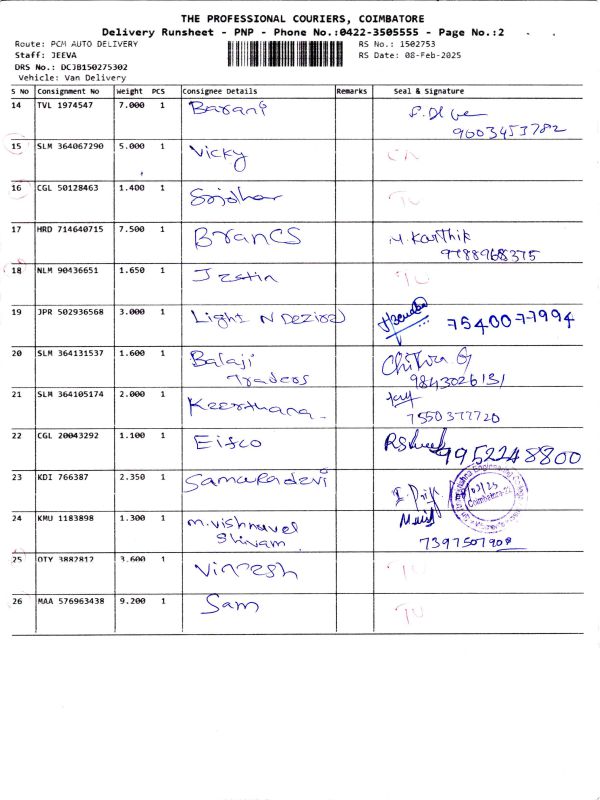 THE PROFESSIONAL COURIERS, COIMBATORE
Delivery Runsheet - PNP - Phone No.:0422-3505555 - Page No.:2
Route: PCM AUTO DELIVERY
RS No.: 1502753
Staff: JEEVA
RS Date: 08-Feb-2025
DRS No.: DCJB150275302
Vehicle: Van Delivery
S No Consignment No Weight PCS Consignee Details Remarks Seal & Signature
14 TVL 1974547 7.000 1 Barani
9003453782
15 SLM 364067290 5.000 1 Vicky
16 CGL 50128463 1.400 1 Sridhar
17 HRD 714640715 7.500 1 BranCS M. Karthik
9788968375
18 NLM 90436651 1.650 1 Jestin
19 JPR 502936568 3.000 1 Light N Dezired 7540077994
20 SLM 364131537 1.600 1 Balaji Chitra G
Traders 9843026131
21 SLM 364105174 2.000 1 Keerthana
7550377720
22 CGL 20043292 1.100 1 Eifco 9952248800
23 KDI 766387 2.350 1 Samuradevi
24 KMU 1183898 1.300 1 M. Vishnuvel
Shivam
7397507908
25 OTY 3882817 3.600 1
26 MAA 576963438 9.200 1 Sam